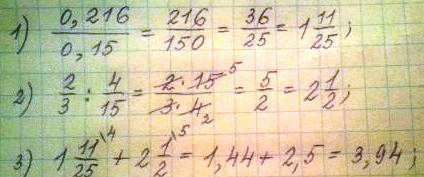 1) 0,216/0,15 = 216/150 = 36/25 = 1 11/25;
2) 2/3 : 4/15 = 2·15⁵/3·4₂ = 5/2 = 2 1/2;
3) 1 11/25\⁴ + 2 1/2\⁵ = 1,44 + 2,5 = 3,94;